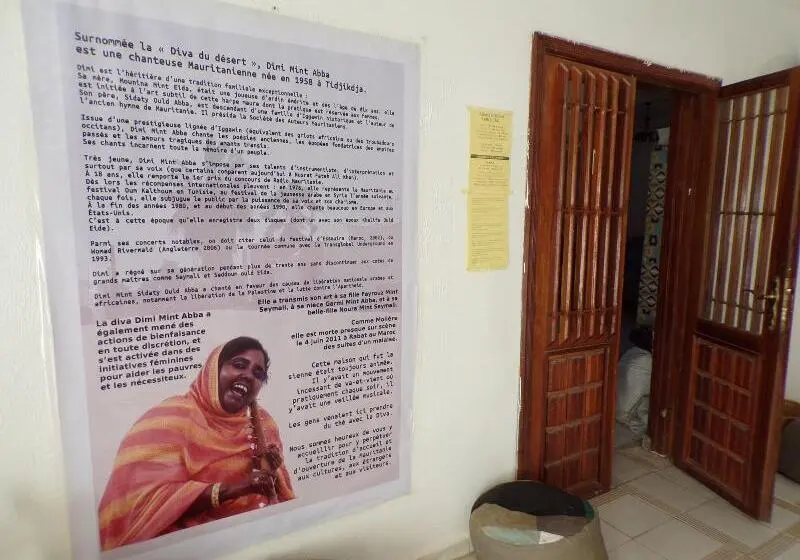 Surnommée la « Diva du désert », Dimi Mint Abba
est une chanteuse Mauritanienne née en 1958 à Tidjikdja.
Dimi est l'héritière d'une tradition familiale exceptionnelle :
Sa mère, Mounina Mint Eida, était une joueuse d'ardin émérite et dès l'âge de dix ans, elle
est initiée à l'art subtil de cette harpe maure dont la pratique est réservée aux femmes.
Son père, Sidaty Ould Abba, est descendant d'une famille d'Iggawin historique et l'auteur de
l'ancien hymne de Mauritanie. Il présida la Société des Auteurs Mauritaniens.
Issue d'une prestigieuse lignée d'Iggawin (équivalent des griots africains ou des troubadours
occitans), Dimi Mint Abba chante les poésies anciennes, les épopées fondatrices des empires
passés et les amours tragiques des amants transis.
Ses chants incarnent toute la mémoire d'un peuple.
Très jeune, Dimi Mint Abba s'impose par ses talents d'instrumentiste, d'interprétation et
surtout par sa voix (que certains comparent aujourd'hui à Nusrat Fateh Ali Khan).
A 18 ans, elle remporte le 1er prix du concours de Radio Mauritanie.
Dès lors les récompenses internationales pleuvent : en 1976, elle représente la Mauritanie au
festival Oum Kalthoum en Tunisie, au festival de la jeunesse arabe en Syrie l'année suivante,
chaque fois, elle subjugue le public par la puissance de sa voix et son charisme.
A la fin des années 1980, et au début des années 1990, elle chante beaucoup en Europe et aux
États-Unis.
C'est à cette époque qu'elle enregistre deux disques (dont un avec son époux Khalifa Ould
Eide).
Parmi ses concerts notables, on doit citer celui du festival d'Essouira (Maroc, 2003), du
Womad Rivermaid (Angleterre 2006) ou la tournée commune avec le Transglobal Underground en
1993.
Dimi a régné sur sa génération pendant plus de trente ans sans discontinuer aux côtés de
grands maîtres comme Seymali et Seddoum ould Eida.
Dimi Mint Sidaty Ould Abba a chanté en faveur des causes de libération nationale arabes et
africaines, notamment la libération de la Palestine et la lutte contre l'Apartheid.
Elle a transmis son art à sa fille Fayrouz Mint
Seymali, à sa nièce Garmi Mint Abba, et à sa
belle-fille Noura Mint Seymali.
La diva Dimi Mint Abba a
également mené des
actions de bienfaisance
en toute discrétion, et
s'est activée dans des
initiatives féminines
pour aider les pauvres
et les nécessiteux.
Comme Molière
elle est morte presque sur scène
le 4 juin 2011 à Rabat au Maroc
des suites d'un malaise.
Cette maison qui fut la
sienne était toujours animée.
Il y'avait un mouvement
incessant de va-et-vient où
pratiquement chaque soir, il
y'avait une veillée musicale.
Les gens venaient ici prendre
du thé avec la Diva.
Nous sommes heureux de vous y
accueillir pour y perpétuer
la tradition d'accueil et
d'ouverture de la Mauritanie
aux cultures, aux étrangers
et aux visiteurs.